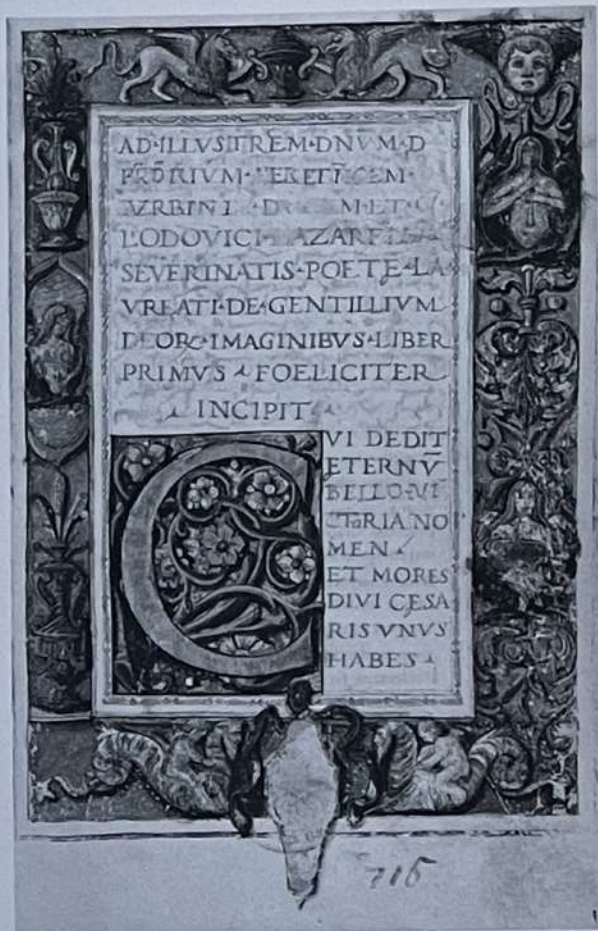 AD·ILLVSTREM·DNVM·D
VRBINI
LODOVICI
SEVERINATIS·POETE·LA
VREATI·DE·GENTILLIVM
DEOR·IMAGINIBVS·LIBER
PRIMVS FOELICITER
INCIPIT
CVI DEDIT
ETERNV̄
BELLO·VI
CToRIA NO
MEN
ET MORES
DIVI CESA
RIS VNVS
HABES
716